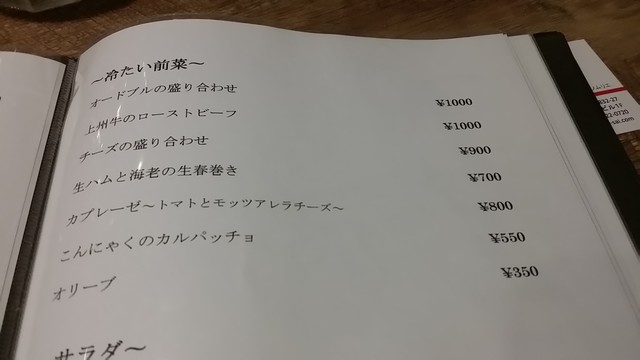 ～冷たい前菜～
オードブルの盛り合わせ ¥1000
上州牛のローストビーフ ¥1000
チーズの盛り合わせ ¥900
生ハムと海老の生春巻き ¥700
カプレーゼ～トマトとモッツアレラチーズ～ ¥800
こんにゃくのカルパッチョ ¥550
オリーブ ¥350
サラダ～